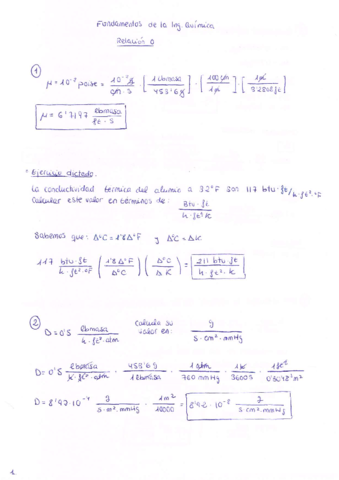 Fundamentos de la Ing Química
Relación 0
① μ = 10⁻² poise = 10⁻² g / cm · s [1 lbmasa / 453'6 g] · [100 cm / 1 m] [1 m / 3'2808 ft]
μ = 6'7197 lbmasa / ft · s
· Ejercicio dictado.
La conductividad térmica del aluminio a 32°F son 117 btu · ft / h · ft² · °F
Calcular este valor en términos de: Btu · ft / h · ft² · K
Sabemos que: Δ°C = 1'8 Δ°F y Δ°C = ΔK
117 btu · ft / h · ft² · °F (1'8 Δ°F / Δ°C) (Δ°C / ΔK) = 211 btu ft / h · ft² · K
② D = 0'5 lbmasa / h · ft² · atm Calcula su valor en: g / s · cm² · mmHg
D = 0'5 lbmasa / h · ft² · atm · 453'6 g / 1 lbmasa · 1 atm / 760 mmHg · 1 h / 3600 s · 1 ft² / 0'3048² m²
D = 8'92 · 10⁻⁴ g / s · m² · mmHg · 1 m² / 10000 = 8'92 · 10⁻⁸ g / s · cm² · mmHg
1